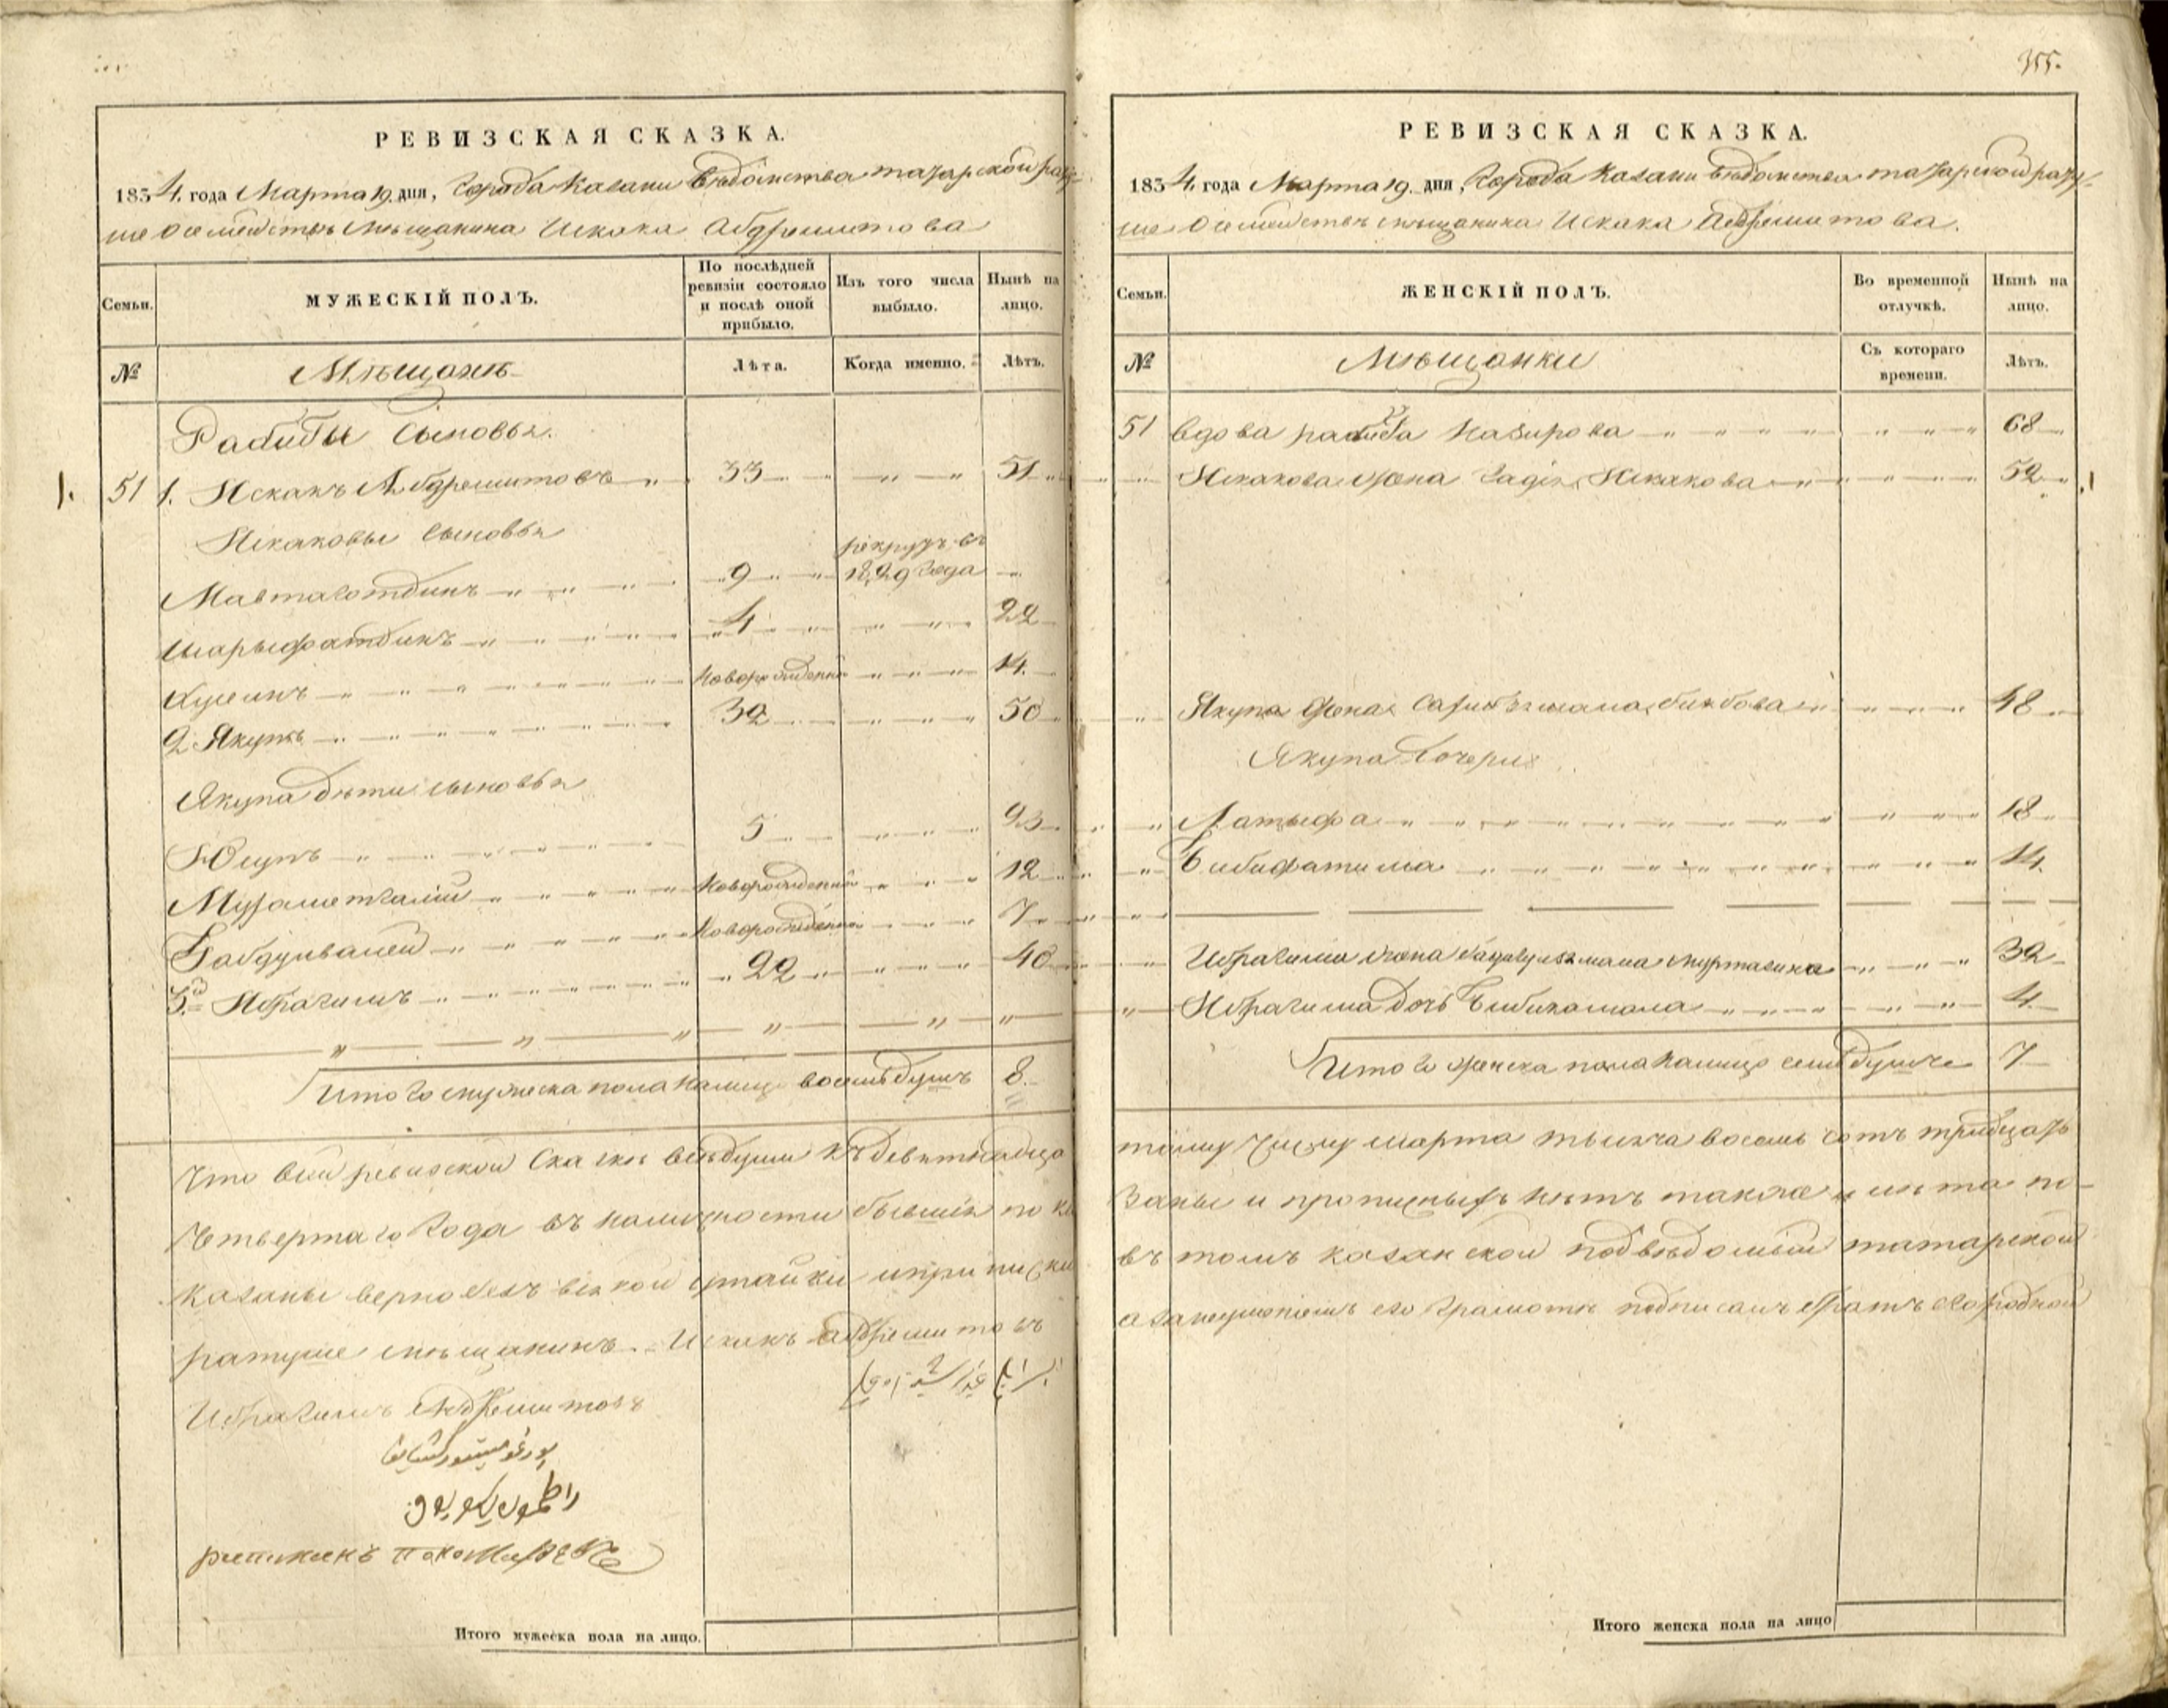 355.
РЕВИЗСКАЯ СКАЗКА.
1834 года Марта 19 дня, города Казани ведомства татарской рату
ше о семействѣ мѣщанина Искака Абдрешитова
Семьи.
МУЖЕСКІЙ ПОЛЪ.
По послѣдней ревизіи состояло и послѣ оной прибыло.
Изъ того числа выбыло.
Нынѣ на лицо.
№
Мѣщанъ
Лѣта.
Когда именно.
Лѣтъ.
Рабибы Сыновья.
1. 51 1. Искакъ Абдрешитовъ 33 51
Искаковы Сыновья
рекрутъ въ
9 1829 года
Шарыфатдинъ 4 22
Хусеинъ новорожденный 14.
2 Якупъ 32 50
Якупа дѣти сыновья
Юсупъ 5 23
Мухаметгалій новорожденный 12
Габдулвалей новорожденный 7
3й Ибрагимъ 22 40
Итого мужеска пола налицо восемь душъ 8.
Что въ сей ревизской Сказкѣ всѣ души къ девятнадца
Четвертаго Года въ наличности бывшія пока
казаны верно безъ всякой утайки и приписки
ратуше мѣщанинъ Искакъ Абдрешитовъ
Ибрагимъ Абдрешитовъ
Итого мужеска пола на лицо.
РЕВИЗСКАЯ СКАЗКА.
1834 года Марта 19 дня, Города Казани ведомства татарской рату-
ше о семействѣ мѣщанина Искака Абдрешитова.
Семьи.
ЖЕНСКІЙ ПОЛЪ.
Во временной отлучкѣ.
Нынѣ на лицо.
№
Мѣщанки
Съ котораго времени.
Лѣтъ.
51 вдова рабиба Назирова 68
Искакова жена Искакова 52
Якупа жена 48
Якупа дочери
Латыфа 18
Бибифатима 14.
Ибрагима жена Муртазина 32
Ибрагима дочь Бибикамала 4
Итого женска пола налицо семь душъ 7
тому числу марта тысяча восемь сотъ тридцать
заны и прописныхъ нѣтъ также и
въ томъ казанской подведомый татарской
а за неумѣніемъ его грамоте подписалъ братъ его родной
Итого женска пола на лицо